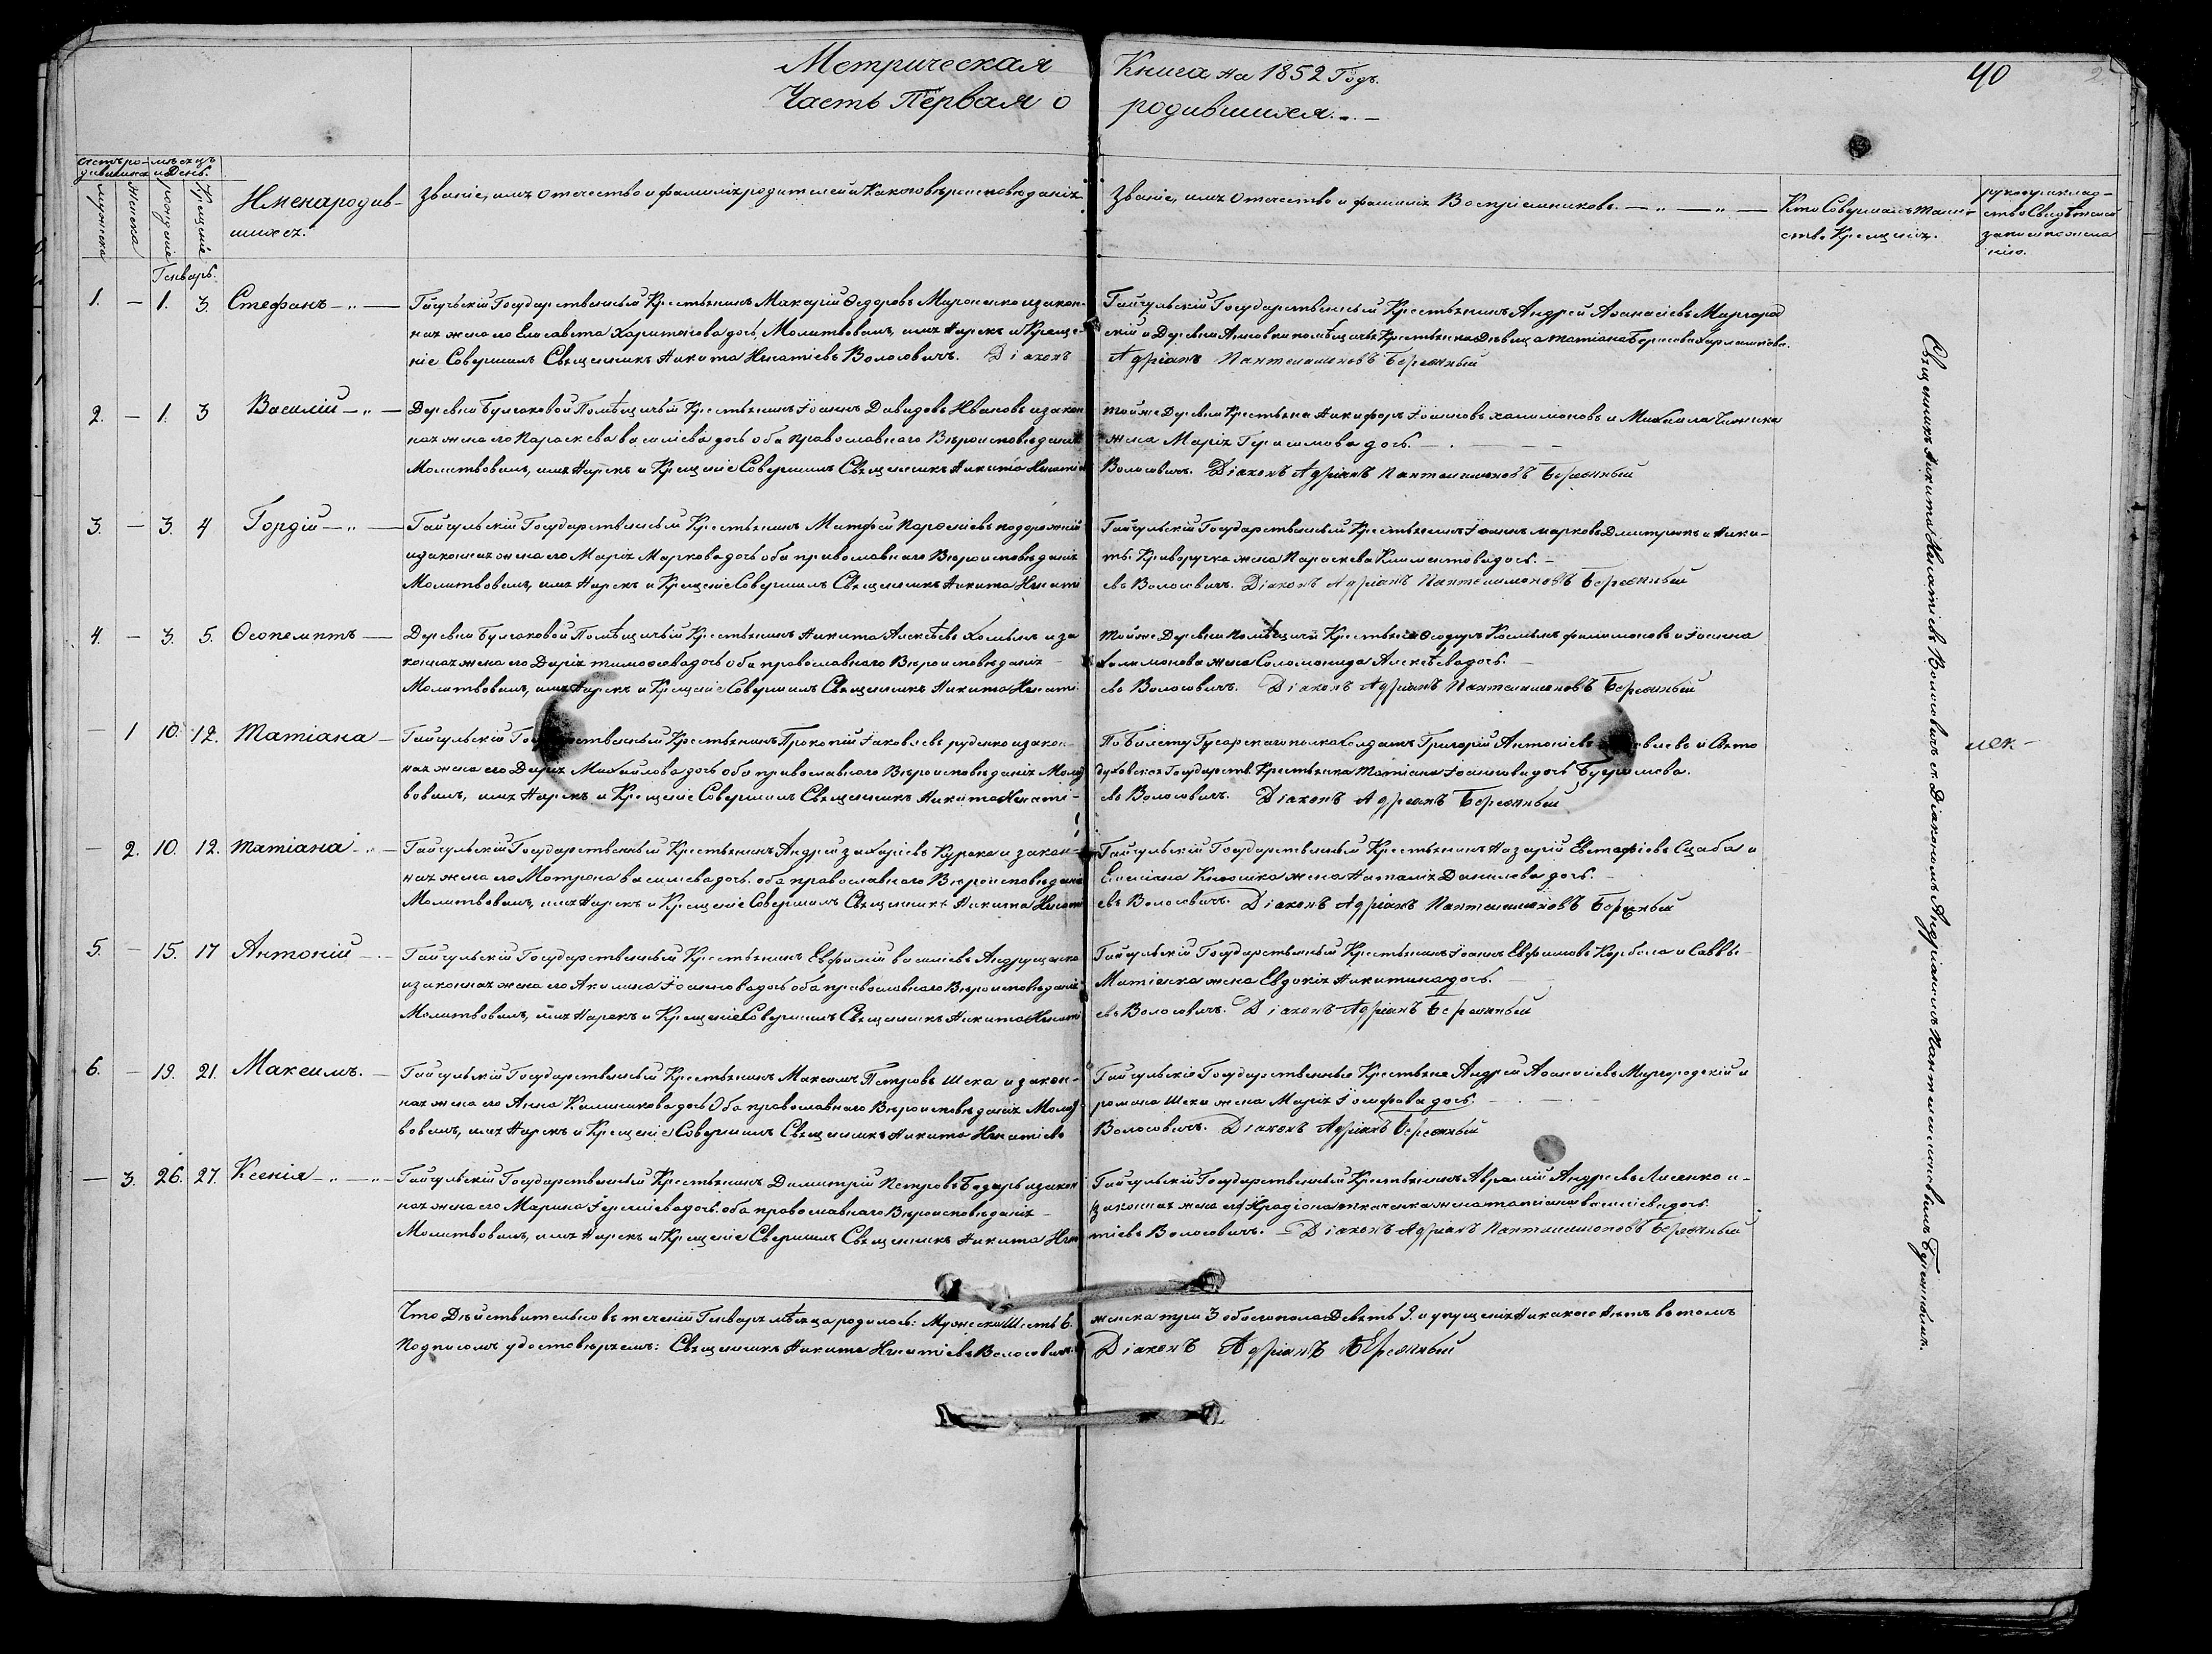 Метрическая Книга на 1852 Годъ.
40
2
Часть Первая о родившихся.
счетъ ро- мѣсяцъ
дившихся и День.
мужеска
женска
рождение
Крещение
Имена родив-
шихся.
Званіе, имя отечество и фамилія родителей и Какого вѣроисповѣданія
Званіе, имя Отечество и фамилія Воспріемниковъ.
Кто Совершалъ таин-
ство Крещенія.
рукоприклад-
ство Свидѣтелей
записи по жела
нію.
Генварь.
1. — 1. 3. Стефанъ
Гайгульскій Государственный Крестьянинъ Макарій Ѳедоровъ Мироненко и закон-
ная жена его Елисавета Харитонова дочь, Молитвовалъ, имя Нарекъ и Креще-
ніе Совершилъ Священникъ Никита Игнатіевъ Волосовичъ. Діаконъ
Гайгульскій Государственный Крестьянинъ Андрей Аѳанасіевъ Миргород
скій и Деревни помѣщичья Крестьянка Дѣвица татіана Борисова
Адріанъ Пантелимоновъ Бережный
2. — 1. 3 Василій
Деревни Булгаковой Помѣщичьій Крестьянинъ Іоаннъ Давидовъ Ивановъ и закон
ная жена его Параскева василіева дочь оба православнаго Вѣроисповѣданія
Молитвовалъ, имя Нарекъ и Крещеніе Совершилъ Священникъ Никита Игнатіе
тойже Деревни Крестьяне Никифоръ Іоанновъ и Михаила
жена Марія Герасимова дочь.
Волосовичъ. Діаконъ Адріанъ Пантелимоновъ Бережный
3. — 3. 4 Гордій
Гайгульскій Государственный Крестьянинъ Матфей подорожній
и законная жена его Марія Маркова дочь оба православнаго Вѣроисповѣданія
Молитвовалъ, имя Нарекъ и Крещеніе Совершилъ Священникъ Никита Игнаті
Гайгульскій Государственный Крестьянинъ Іоаннъ марковъ Дмитрикъ и Ники-
ты Криворучка жена Параскева Климентова дочь.
евъ Волосовичъ. Діаконъ Адріанъ Пантелимоновъ Бережный
4. — 3. 5. Ѳеопемптъ
Деревни Булгаковой Помѣщичьій Крестьянинъ Никита Алексѣевъ и за
конная жена его Дарія тимоѳеева дочь оба православнаго Вѣроисповѣданія
Молитвовалъ, имя Нарекъ и Крещеніе Совершилъ Священникъ Никита Игнаті
тойже Деревни помѣщичьи Крестьяне Ѳеодоръ и Іоанна
жена Соломонида Алексѣева дочь.
евъ Волосовичъ. Діаконъ Адріанъ Пантелимоновъ Бережный
— 1 10. 12. Татіана
Гайгульскій Государственный Крестьянинъ Прокопій Іаковлевъ руденко и закон-
ная жена его Дарія Михайлова дочь оба православнаго Вѣроисповѣданія Молит
вовалъ, имя Нарекъ и Крещеніе Совершилъ Священникъ Никита Игнаті-
По билету Гусарскаго полка Солдатъ Григорій Антоніевъ и Свято
духовская Государств. Крестьянка Татіана Іоаннова дочь
евъ Волосовичъ. Діаконъ Адріанъ Бережный
— 2. 10. 12. татіана
Гайгульскій Государственный Крестьянинъ Андрей захаріевъ и закон-
ная жена его Мотрона василіева дочь. оба православнаго Вѣроисповѣдан
Молитвовалъ, имя Нарекъ и Крещеніе Совершилъ Священникъ Никита Игнаті
Гайгульскій Государственный Крестьянинъ Назарій Евстафіевъ и
жена Наталія Данилева дочь.
евъ Волосовичъ. Діаконъ Адріанъ Пантелимоновъ Бережный
5. — 15. 17 Антоній
Гайгульскій Государственный Крестьянинъ Евфимій василіевъ Андрущенко
и законная жена его Акилина Іоаннова дочь оба православнаго Вѣроисповѣданія
Молитвовалъ, имя Нарекъ и Крещеніе Совершилъ Священникъ Никита Игнаті
Гайгульскій Государственный Крестьянинъ Іоаннъ Евфимовъ и Саввы
жена Евдокія Никитина дочь.
евъ Волосовичъ. Діаконъ Адріанъ Бережный
6. — 19. 21. Максимъ.
Гайгульскій Государственный Крестьянинъ Максимъ Петровъ Шека и закон-
ная жена его Анна Калиникова дочь Оба православнаго Вѣроисповѣданія Молит
вовалъ, имя Нарекъ и Крещеніе Совершилъ Священникъ Никита Игнатіевъ
Гайгульскіе Государственные Крестьяне Андрей Аѳанасіевъ Миргородскій и
романа Шеки жена Марія Іосифова дочь.
Волосовичъ. Діаконъ Адріанъ Бережный
— 3. 26. 27. Ксенія
Гайгульскій Государственный Крестьянинъ Димитрій Петровъ и закон
ная жена его Марина дочь. оба православнаго Вѣроисповѣданія
Молитвовалъ, имя Нарекъ и Крещеніе Свершилъ Священникъ Никита Игна
Гайгульскій Государственный Крестьянинъ Аврамій Андреевъ Лисенко и-
Иродіона ткаченка жена татіана василіева дочь.
тіевъ Волосовичъ. Діаконъ Адріанъ Пантелимоновъ Бережный
Что Дѣйствительно въ теченіи Генваря мѣсяца родилось: Мужеска Шесть 6. женска три 3 обоего пола Девять 9. и упущенія Никакого Нѣтъ въ томъ
Подписомъ удостовѣряемъ: Священникъ Никита Игнатіевъ Волосовичъ. Діаконъ Адріанъ Бережный
Священникъ Никита Игнатіевъ Волосовичъ съ Діакономъ Андріаномъ Пантелимоновымъ Бережнымъ.